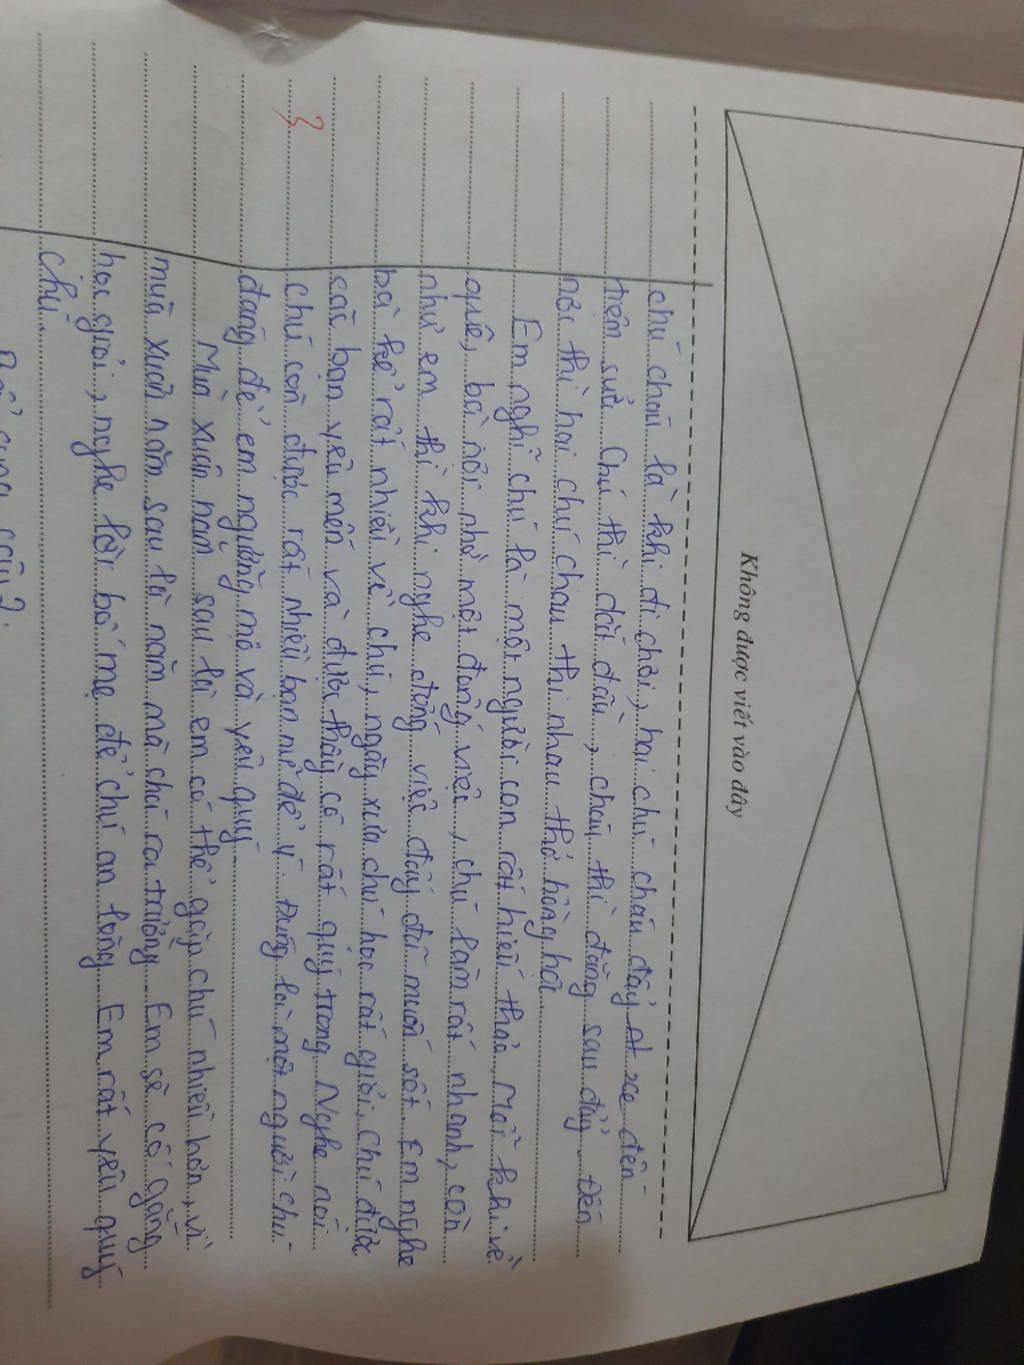 Không được viết vào đây
chú cháu là khi đi chơi, hai chú cháu đẩy xe đến
tiệm sửa. Chú thì dắt đầu, cháu thì đằng sau đẩy. Đến
nơi thì hai chú cháu thi nhau thở hồng hộc.
Em nghĩ chú là một người con rất hiếu thảo. Mỗi khi về
quê, bà nội nhờ một đống việc, chú làm rất nhanh, còn
như em thì khi nghe đống việc đấy đã muốn sốt. Em nghe
bà kể rất nhiều về chú, ngày xưa chú học rất giỏi, chú được
các bạn yêu mến và được thầy cô rất quý trọng. Nghe nói
chú còn được rất nhiều bạn nữ để ý. Đúng là một người chú
3
đáng để em ngưỡng mộ và yêu quý.
Mùa xuân năm sau là em có thể gặp chú nhiều hơn, vì
mùa xuân năm sau là năm mà chú ra trường. Em sẽ cố gắng
học giỏi, nghe lời bố mẹ để chú an lòng. Em rất yêu quý
chú.
câu 2: